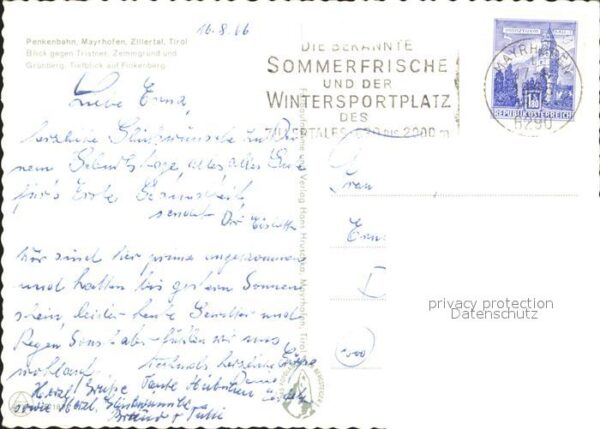 16.8.66
Penkenbahn, Mayrhofen, Zillertal, Tirol
Blick gegen Tristner, Zemmgrund und
Grünberg. Tiefblick auf Finkenberg.
DIE BEKANNTE
SOMMERFRISCHE
UND DER
WINTERSPORTPLATZ
DES
ZILLERTALES 630 bis 2000 m
MAYRHOFEN
6290
REPUBLIK ÖSTERREICH
Liebe Erna,
herzliche Glückwünsche zu Dei-
nem Geburtstage, alles, alles Gute
für's Erste Gesundheit,
sendet Dir
Wir sind hier prima angekommen
und hatten bis gestern Sonnen
schein, leider heute Gewitter und
Regen Sonst aber fühlen wir uns
wohlauf. Nochmals herzliche Grüße
Herzl. Grüße Tante
sowie Herzl. Glückwünsche
Frau
privacy protection
Datenschutz
Verlag Hans Hruschka, Mayrhofen, Tirol